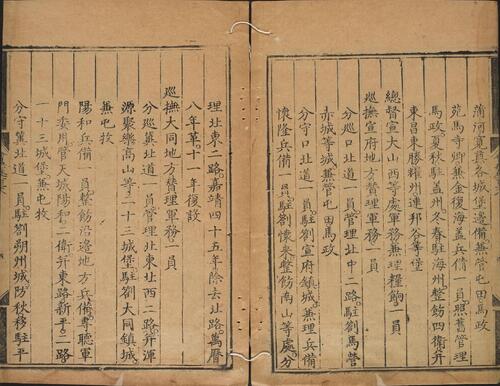 蒲河寬奠各城堡邊備兼管屯田馬政
苑馬寺卿兼金復海盖兵備一員照舊管理
馬政夏秋駐盖州冬春駐海州整飭四衛并
東昌東勝耀州連邦谷等堡
總督宣大山西等處軍務兼理糧餉一員
廵撫宣府地方賛理軍務一員
分廵口北道一員管理北中二路駐劄馬營
赤城等城兼管屯田馬政
分守口北道一員駐劄宣府鎮城兼理兵備
懷隆兵備一員駐劄懷來整飭南山等處分
理北東二路嘉靖四十五年除去北路萬曆
八年革十一年復設
廵撫大同地方賛理軍務一員
分廵冀北道一員管理北東北西二路并渾
源聚樂高山等三十三城堡駐劄大同鎮城
兼屯牧
陽和兵備一員整飭沿邊地方兵備專聽軍
門委用管天城陽和二衛并東路新平二路
一十三城堡兼屯牧
分守冀北道一員駐劄朔州城防秋移駐平